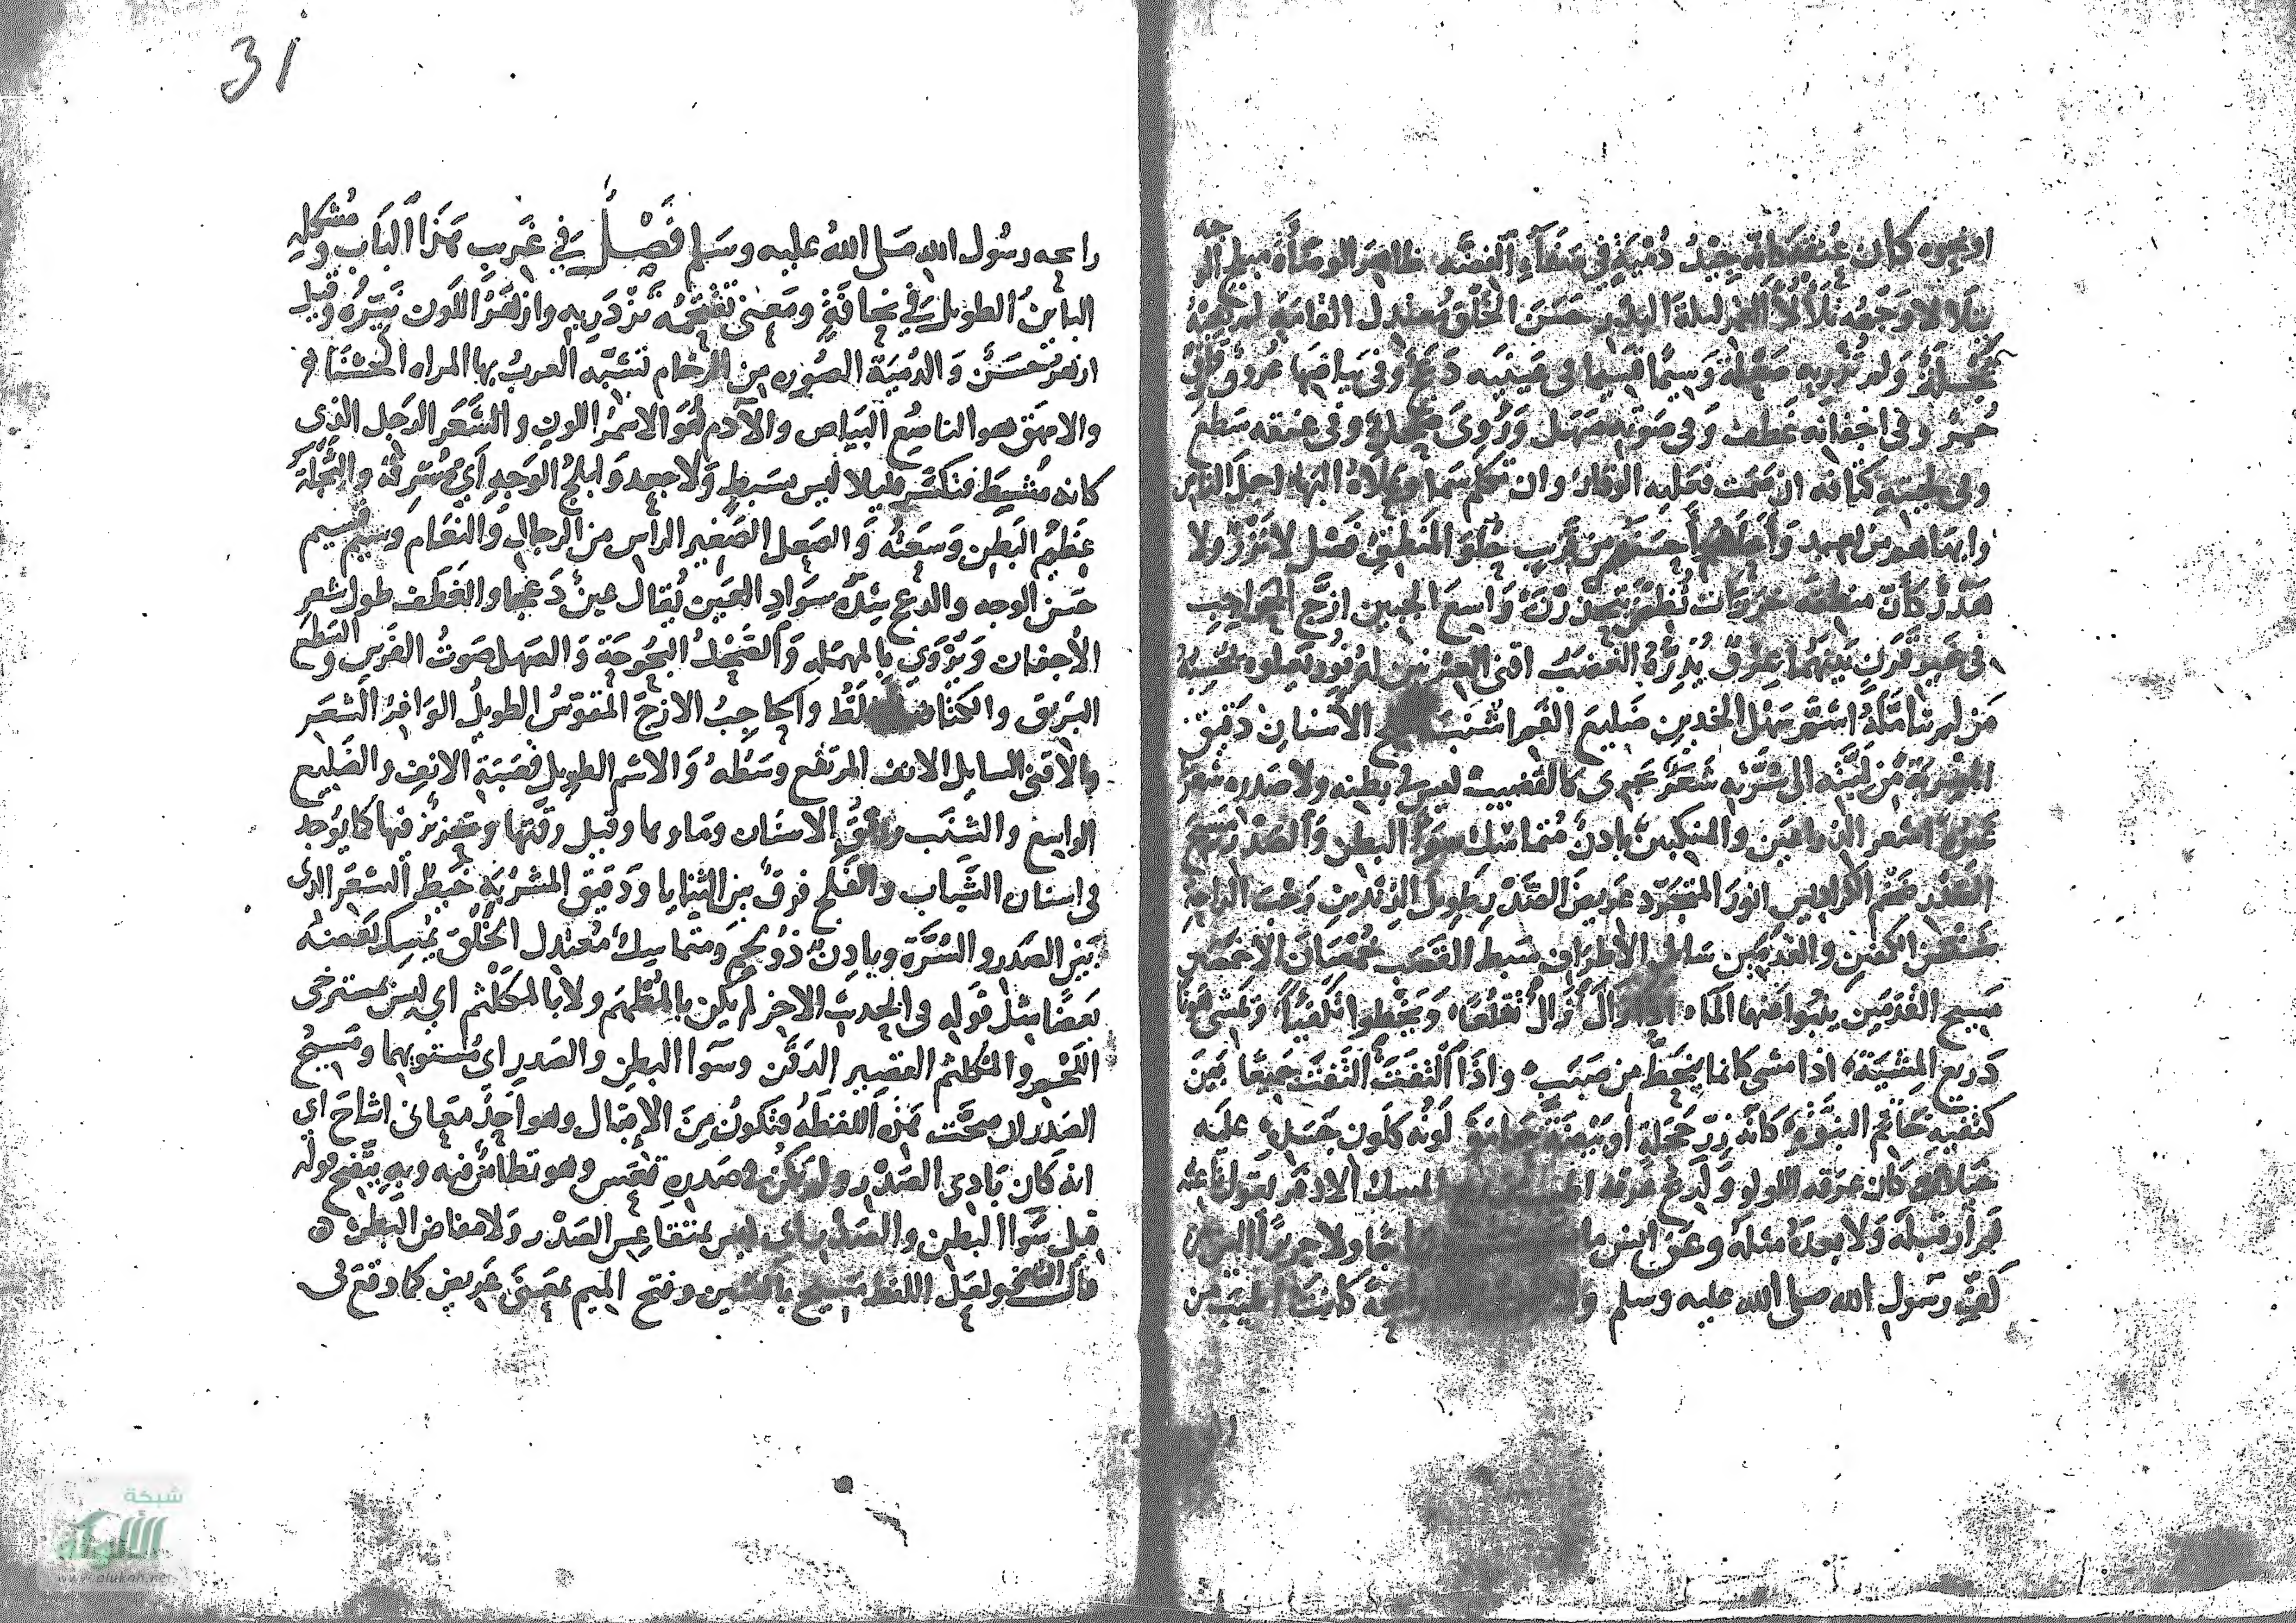 او نحوه كان عنقه كانه جيد دمية في صفاء الفضه ظاهر الوضأة مبلج الوجه
يتلألأ وجهه تلألأ القمر ليلة البدر حسن الخلق معتدل القامة لم تعبه
ثجلة ولم تزر به صعلة وسيما قسيما في عينيه دعج وفي بياضها عروق رقاق
حمر وفي اجفانه غطف وفي صوته صهل وروي صحل وفي عنقه سطع
وفي لحيته كثافه ان صمت فعليه الوقار وان تكلم سما وعلاه البهاء اجمل الناس
وابهاهم من بعيد واحلاهم واحسنهم من قريب حلو المنطق فصل لا نزر ولا
هذر كأن منطقه خرزات نظم يتحدرن واسع الجبين ازج الحواجب
في غير قرن بينهما عرق يدره الغضب اقنى العرنين له نور يعلوه يحسبه
من لم يتأمله اشم سهل الخدين ضليع الفم اشنب الاسنان دقيق
المسربة من لبته الى سرته شعر يجرى كالقضيب ليس في بطنه ولا صدره شعر
غيره اشعر الذراعين والمنكبين بادن متماسك سواء البطن والصدر مسيح
الصدر ضخم الكراديس انور المتجرد عريض الصدر طويل الزندين رحب الراحة
شثن الكفين والقدمين سايل الاطراف سبط القصب خمصان الاخمصين
مسيح القدمين ينبوا عنهما الماء اذا زال زال تقلعا ويخطوا تكفيا ويمشي هونا
ذريع المشية اذا مشى كانما ينحط من صبب واذا التفت التفت جميعا بين
كتفيه خاتم النبوه كانه زر حجلة او بيضة حمامة لونه كلون جسده عليه
خيلان كان عرقه اللولو ولريح عرقه المسك الاذفر يقول ناعته
لم أر قبله ولا بعده مثله وعن انس ما ديباجا ولا حريرا الين من
كف رسول الله صلى الله عليه وسلم رائحة كانت اطيب من
31
رايحه رسول الله صلى الله عليه وسلم فصل في غريب هذا الباب ومشكله
الباين الطويل في نحافة ومعنى تقتحمه تزدريه وازهر اللون نيره وقيل
ازهر حسن والدمية الصوره من الرخام تشبه العرب بها المراه الحسنا
والامهق هو الناصع البياض والآدم هو الاسمر اللون والشعر الرجل الذي
كانه مشيط فتكسر قليلا ليس بسبط ولا جعد وابلج الوجه أي مشرقه والثجلة
عظم البطن وسعته والصعل الصغير الراس من الرجال والنعام وسيم قسيم
حسن الوجه والدعج شدة سواد العين يقال عين دعجا والغطف طول شعر
الأجفان ويروى بالمهمله والصحل البحوحة والصهل صوت الفرس والسطع
البريق والكثافة الغلظ والحاجب الازج المتقوس الطويل الوافر الشعر
والأقنى السايل الانف المرتفع وسطه والاشم الطويل قصبة الانف والضليع
الواسع والشنب رونق الاسنان وماوها وقيل رقتها وتحزيز فيها كما يوجد
في اسنان الشباب والفلج فرق بين الثنايا ودقيق المسربة خيط الشعر الذي
بين الصدر والسرة وبادن ذو لحم ومتماسك معتدل الخلق يمسك بعضه
بعضا مثل قوله في الحديث الاخر لم يكن بالمطهم ولا بالمكلثم اي ليس بمسترخى
اللحم والمكلثم القصير الذقن وسوا البطن والصدر اي مستويهما ومسيح
الصدر ان صحت هذه اللفظه فتكون من الاقبال وهو احد معاني اشاح اي
انه كان بادي الصدر ولم يكن في صدره قعس وهو تطامن فيه وبه يتضح قوله
قبل سوا البطن والصدر اي ليس بمتقاعس الصدر ولا مفاض البطن
قال ولعل اللفظ مسيح بالسين وفتح الميم بمعنى عريض كما وقع في
شبكة
الألوكة
www.alukah.net